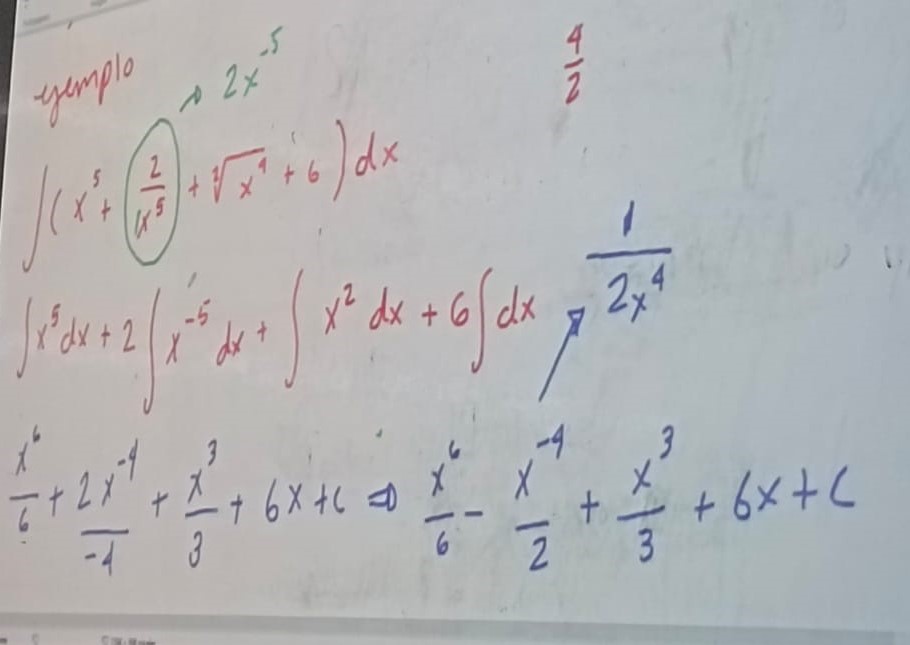 ejemplo → 2x⁻⁵ 4/2
∫(x⁵ + 2/x⁵ + ²√x⁴ + 6) dx
∫x⁵ dx + 2∫x⁻⁵ dx + ∫x² dx + 6∫dx ↗ 1/2x⁴
x⁶/6 + 2x⁻⁴/-4 + x³/3 + 6x + c ⇒ x⁶/6 - x⁻⁴/2 + x³/3 + 6x + c